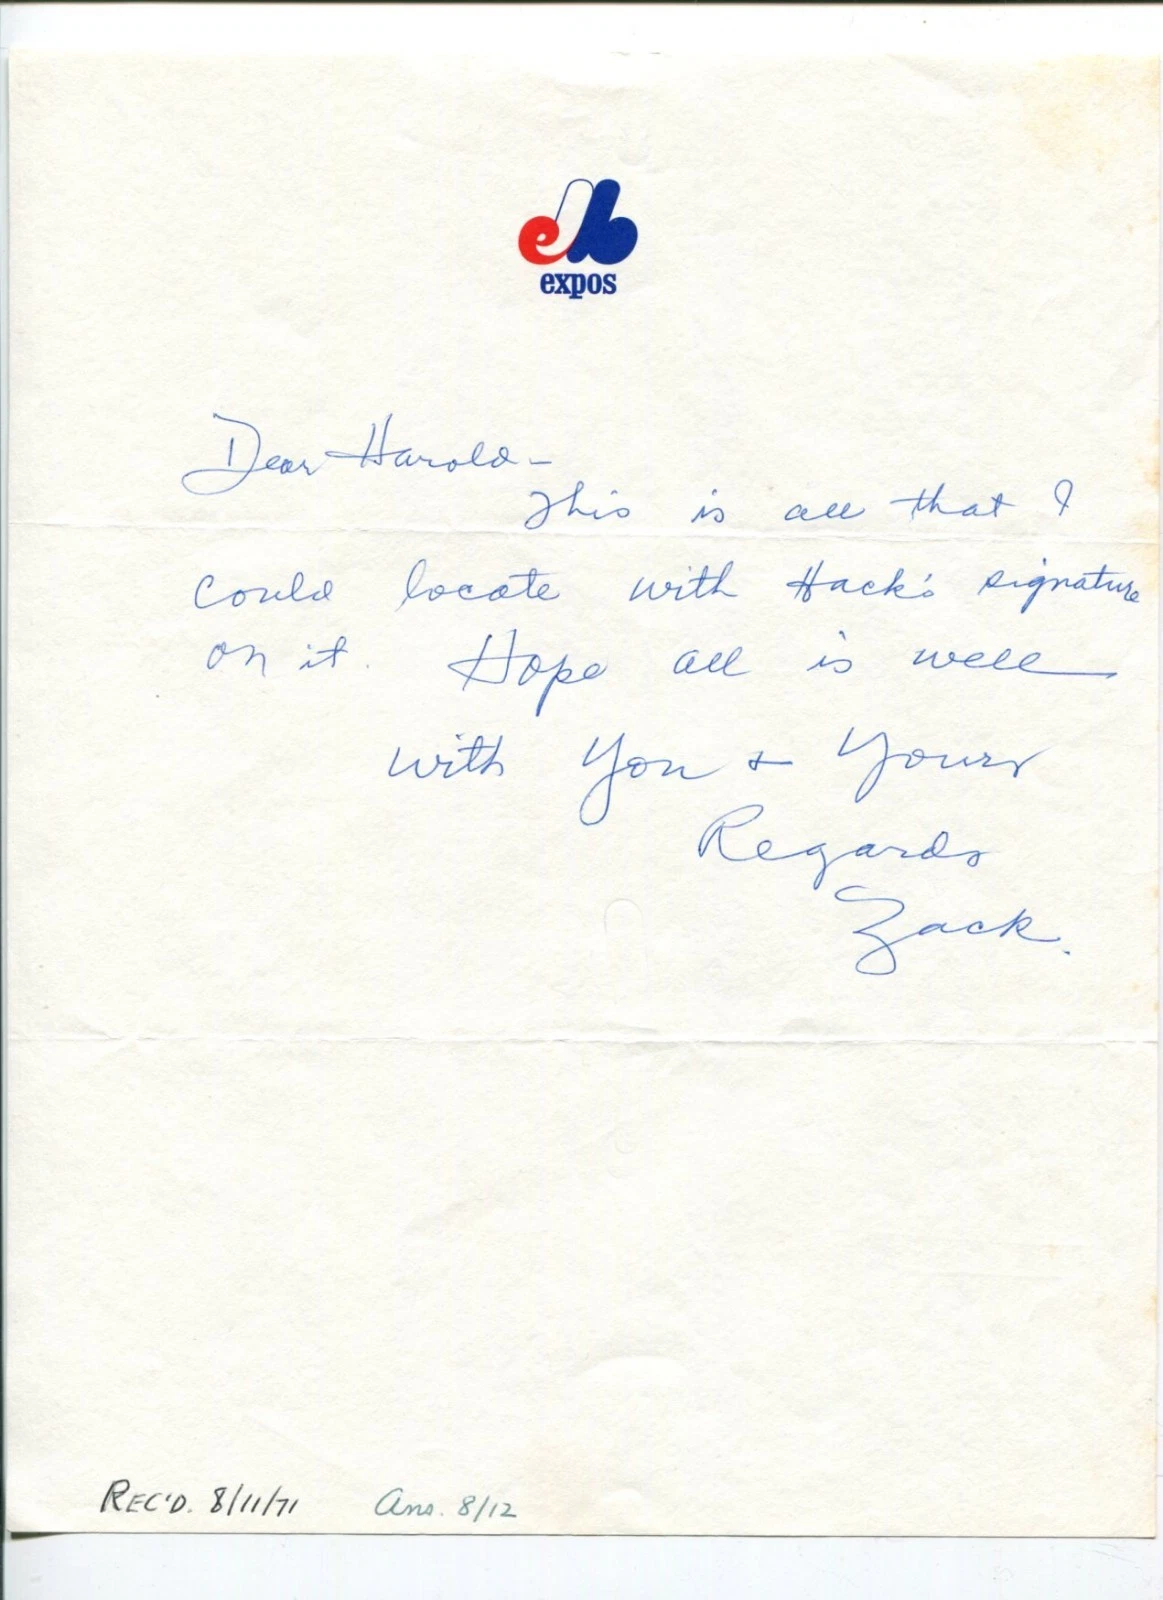 expos
Dear Harold-
This is all that I
could locate with Hack's signature
on it. Hope all is well
with You & Yours
Regards
Zack.
REC'D. 8/11/71 Ans. 8/12